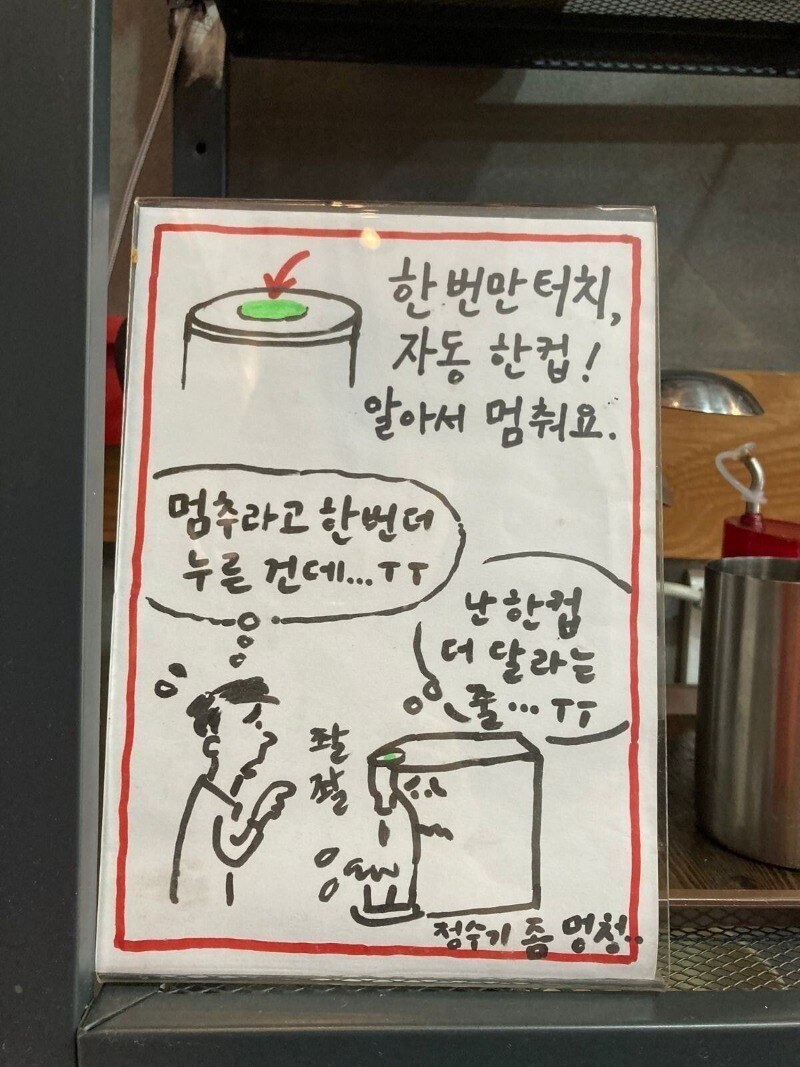 한번만터치,
자동 한컵!
알아서 멈춰요.
멈추라고 한번더
누른 건데...TT
난 한컵
더 달라는
줄...TT
좔
좔
정수기 좀 멍청..